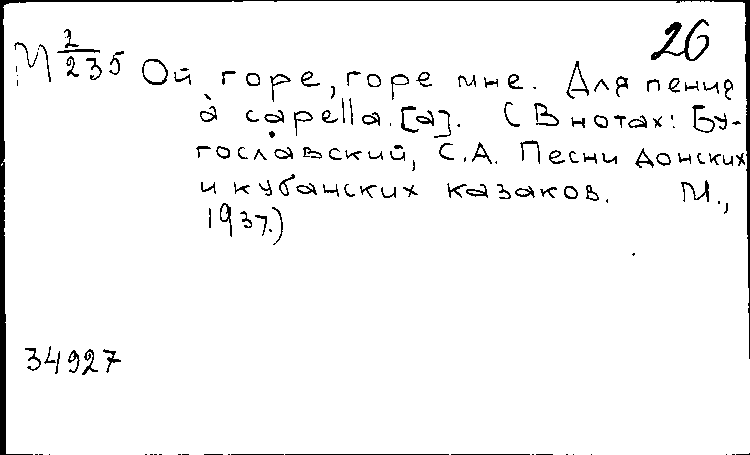 26
М 2/235 Ой, горе, горе мне. Для пения
à capella. [а]. (В нотах: Бу-
гославский, С.А. Песни донских
и кубанских казаков. М.,
1937.)
34927